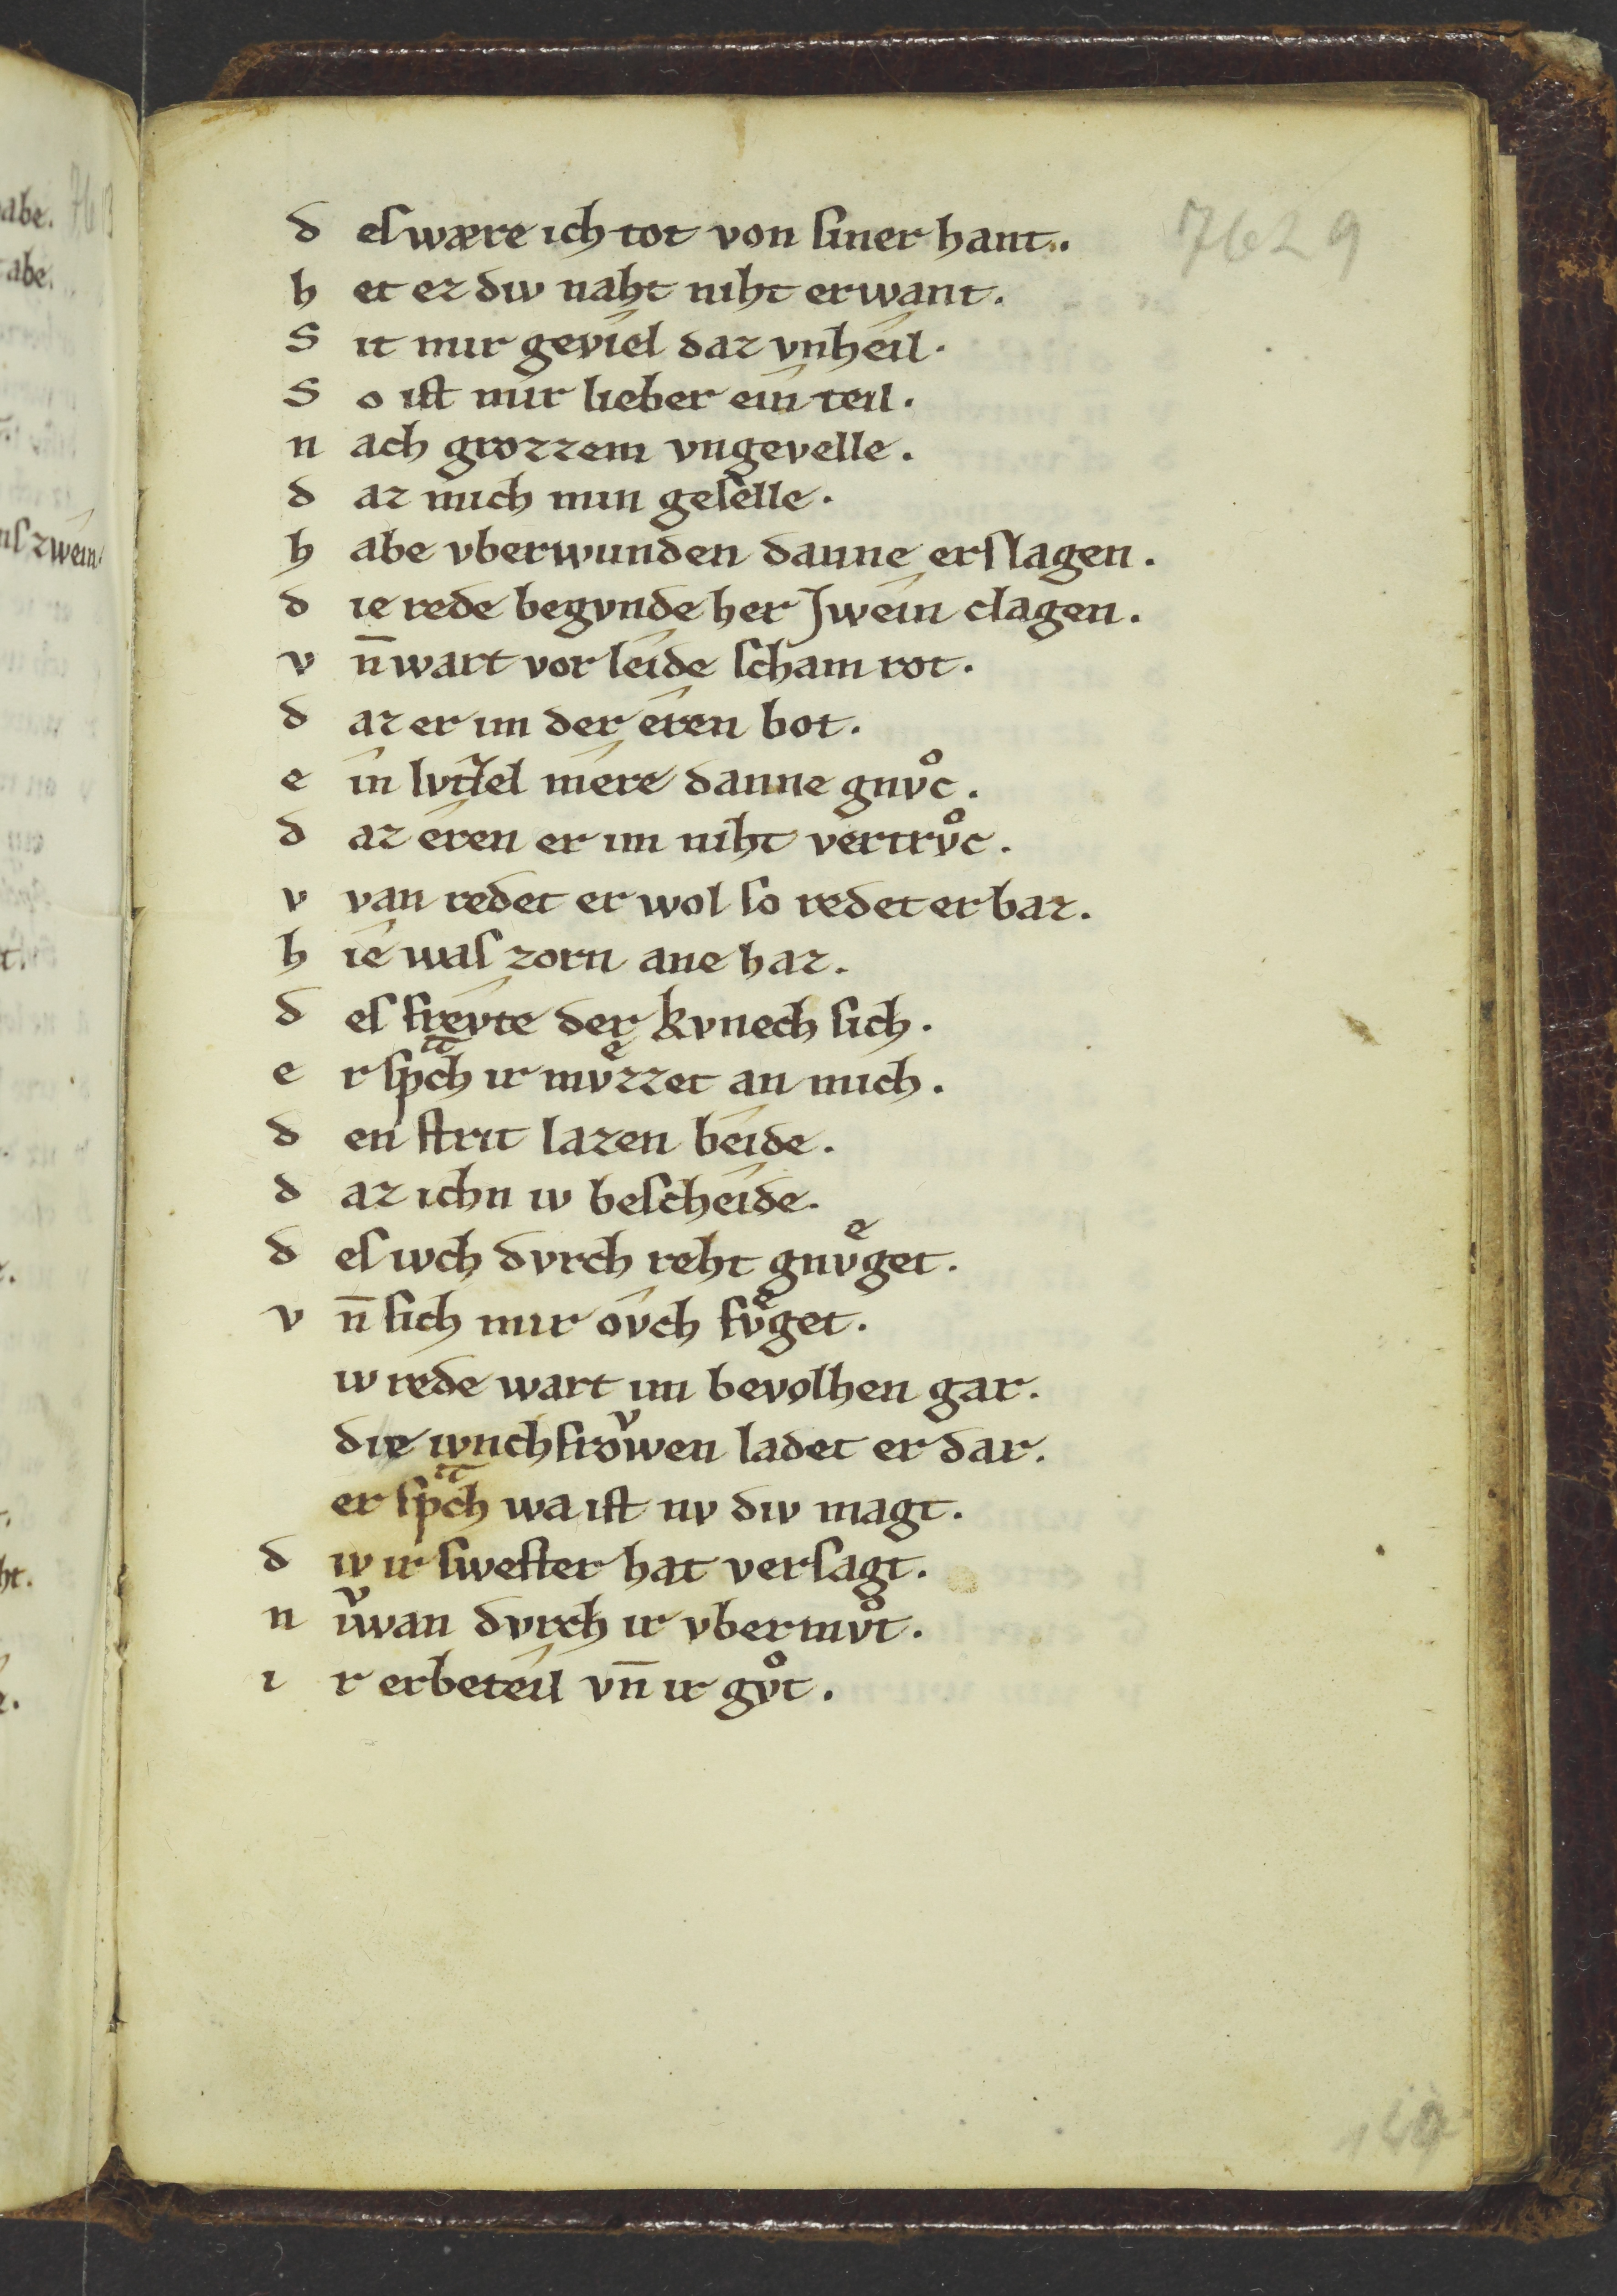 7629
d eſ wære ich tot von ſiner hant.
h et ez div naht niht erwant.
S it mir geviel daz vnheil.
S o iſt mir lieber ein teil.
n ach grozzem vngevelle.
d az mich min geſelle.
h abe vberwunden danne erſlagen.
d ie rede begvnde her Jwein clagen.
v n̄ wart vor leide ſcham rot.
d az er im der eren bot.
e in lvtzel mere danne gnvͦc.
d az eren er im niht vertrvͦc.
v van redet er wol ſo redet er baz.
h ie waſ zorn ane haz.
d eſ frevte der kvnech ſich.
e r ſpᵃch ir mvͤzzet an mich.
d en ſtrit lazen beide.
d az ichn iv beſcheide.
d eſ ivch dvrch reht gnvͤget.
v n̄ ſich mir ovch fvͤget.
iv rede wart im bevolhen gar.
die ivnchfroͮwen ladet er dar.
er ſpᵃch wa iſt nv div magt.
d iv ir ſweſter hat verſagt.
n iͮwan dvrch ir vbermvͦt.
i r erbeteil vn̄ ir gvͦt.